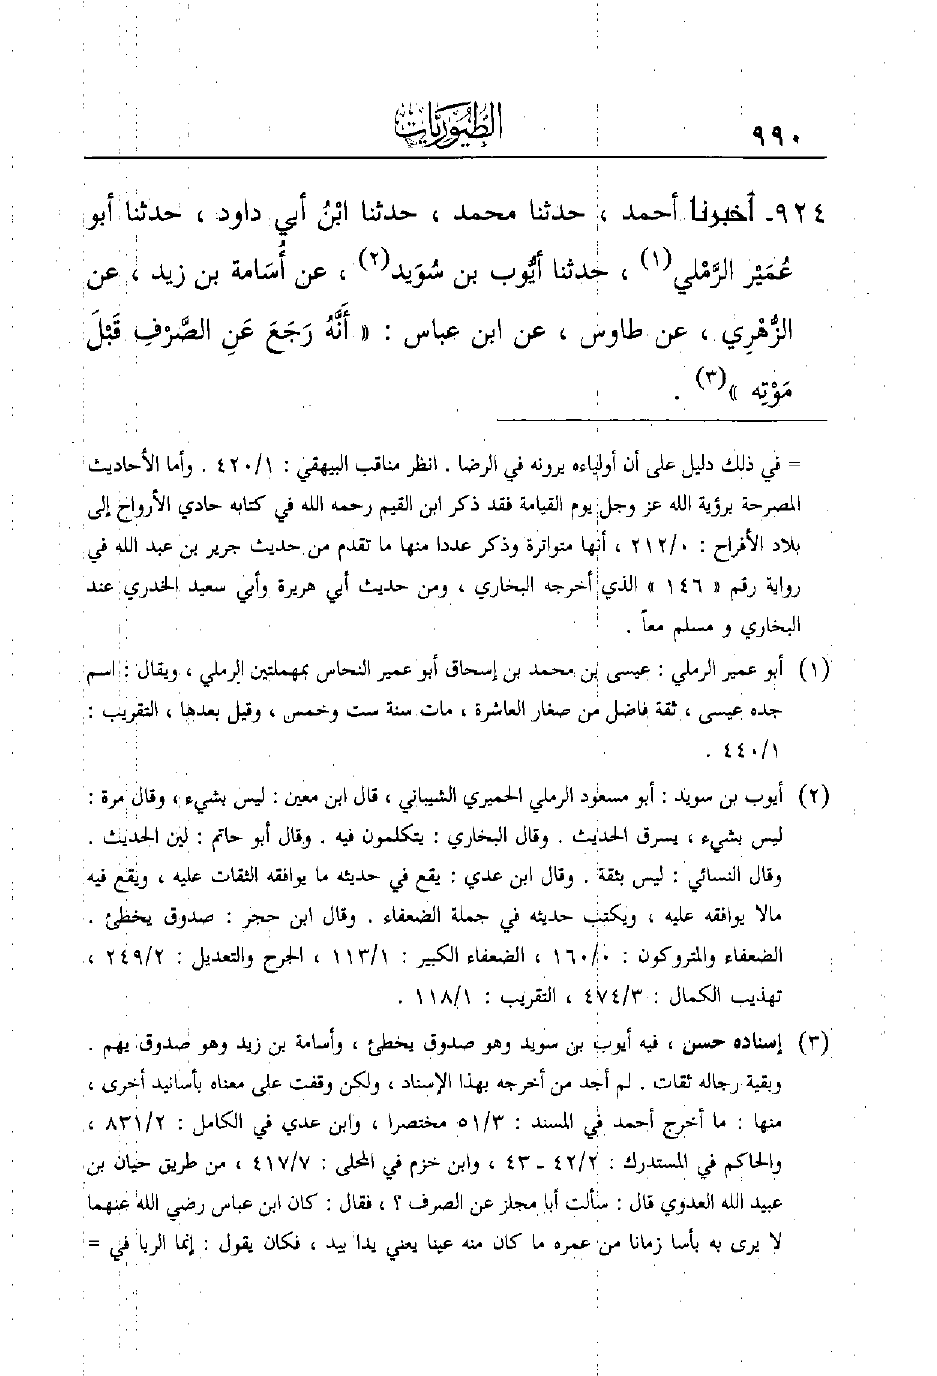 ٩٩٠
الطيوريات
٩٢٤ـ أخبرنا أحمد ، حدثنا محمد ، حدثنا ابْنُ أبي داود ، حدثنا أبو
عُمَيْر الرَّمْلي(١) ، حدثنا أيُّوب بن سُوَيد(٢) ، عن أُسَامة بن زيد ، عن
الزُّهْرِي ، عن طاوس ، عن ابن عباس : « أَنَّهُ رَجَعَ عَنِ الصَّرْفِ قَبْلَ
مَوْتِه »(٣) .
= في ذلك دليل على أن أولياءه يرونه في الرضا . انظر مناقب البيهقي : ٤٢٠/١ . وأما الأحاديث
المصرحة برؤية الله عز وجل يوم القيامة فقد ذكر ابن القيم رحمه الله في كتابه حادي الأرواح إلى
بلاد الأفراح : ٢١٢/٠ ، أنها متواترة وذكر عددا منها ما تقدم من حديث جرير بن عبد الله في
رواية رقم « ١٤٦ » الذي أخرجه البخاري ، ومن حديث أبي هريرة وأبي سعيد الخدري عند
البخاري و مسلم معاً .
(١) أبو عمير الرملي : عيسى بن محمد بن إسحاق أبو عمير النحاس بمهملتين الرملي ، ويقال : اسم
جده عيسى ، ثقة فاضل من صغار العاشرة ، مات سنة ست وخمس ، وقيل بعدها ، التقريب :
٤٤٠/١ .
(٢) أيوب بن سويد : أبو مسعود الرملي الحميري الشيباني ، قال ابن معين : ليس بشيء ، وقال مرة :
ليس بشيء ، يسرق الحديث . وقال البخاري : يتكلمون فيه . وقال أبو حاتم : لين الحديث .
وقال النسائي : ليس بثقة . وقال ابن عدي : يقع في حديثه ما يوافقه الثقات عليه ، ويقع فيه
مالا يوافقه عليه ، ويكتب حديثه في جملة الضعفاء . وقال ابن حجر : صدوق يخطئ .
الضعفاء والمتروكون : ١٦٠/٠ ، الضعفاء الكبير : ١١٣/١ ، الجرح والتعديل : ٢٤٩/٢ ،
تهذيب الكمال : ٤٧٤/٣ ، التقريب : ١١٨/١ .
(٣) إسناده حسن ، فيه أيوب بن سويد وهو صدوق يخطئ ، وأسامة بن زيد وهو صدوق يهم .
وبقية رجاله ثقات . لم أجد من أخرجه بهذا الإسناد ، ولكن وقفت على معناه بأسانيد أخرى ،
منها : ما أخرج أحمد في المسند : ٥١/٣ مختصرا ، وابن عدي في الكامل : ٨٣١/٢ ،
والحاكم في المستدرك : ٤٢/٢ ـ ٤٣ ، وابن حزم في المحلى : ٤١٧/٧ ، من طريق حيان بن
عبيد الله العدوي قال : سألت أبا مجلز عن الصرف ؟ ، فقال : كان ابن عباس رضي الله عنهما
لا يرى به بأسا زمانا من عمره ما كان منه عينا يعني يدا بيد ، فكان يقول : إنما الربا في =